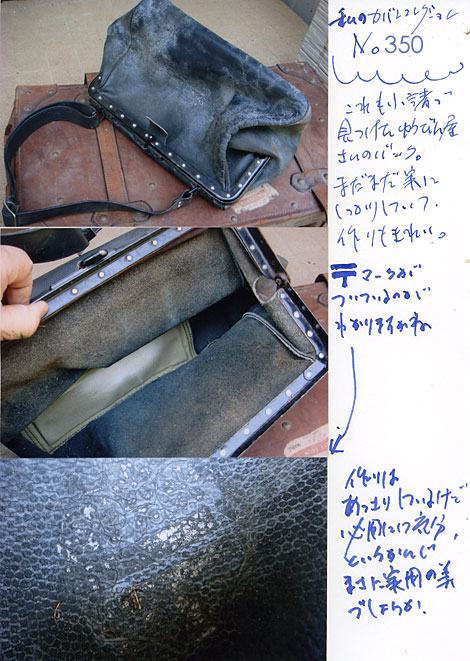 私のカバンコレクション
No 350
これも小諸で
見つけた ゆうびん屋
さんのバック。
まだまだ実に
しっかりしていて、
作りもきれい。
〒マークが
ついているのが
わかりますかね
作りは
あっさりしているけど
必用にして充分、
というかんじ
まさに実用の美
でしょうか。